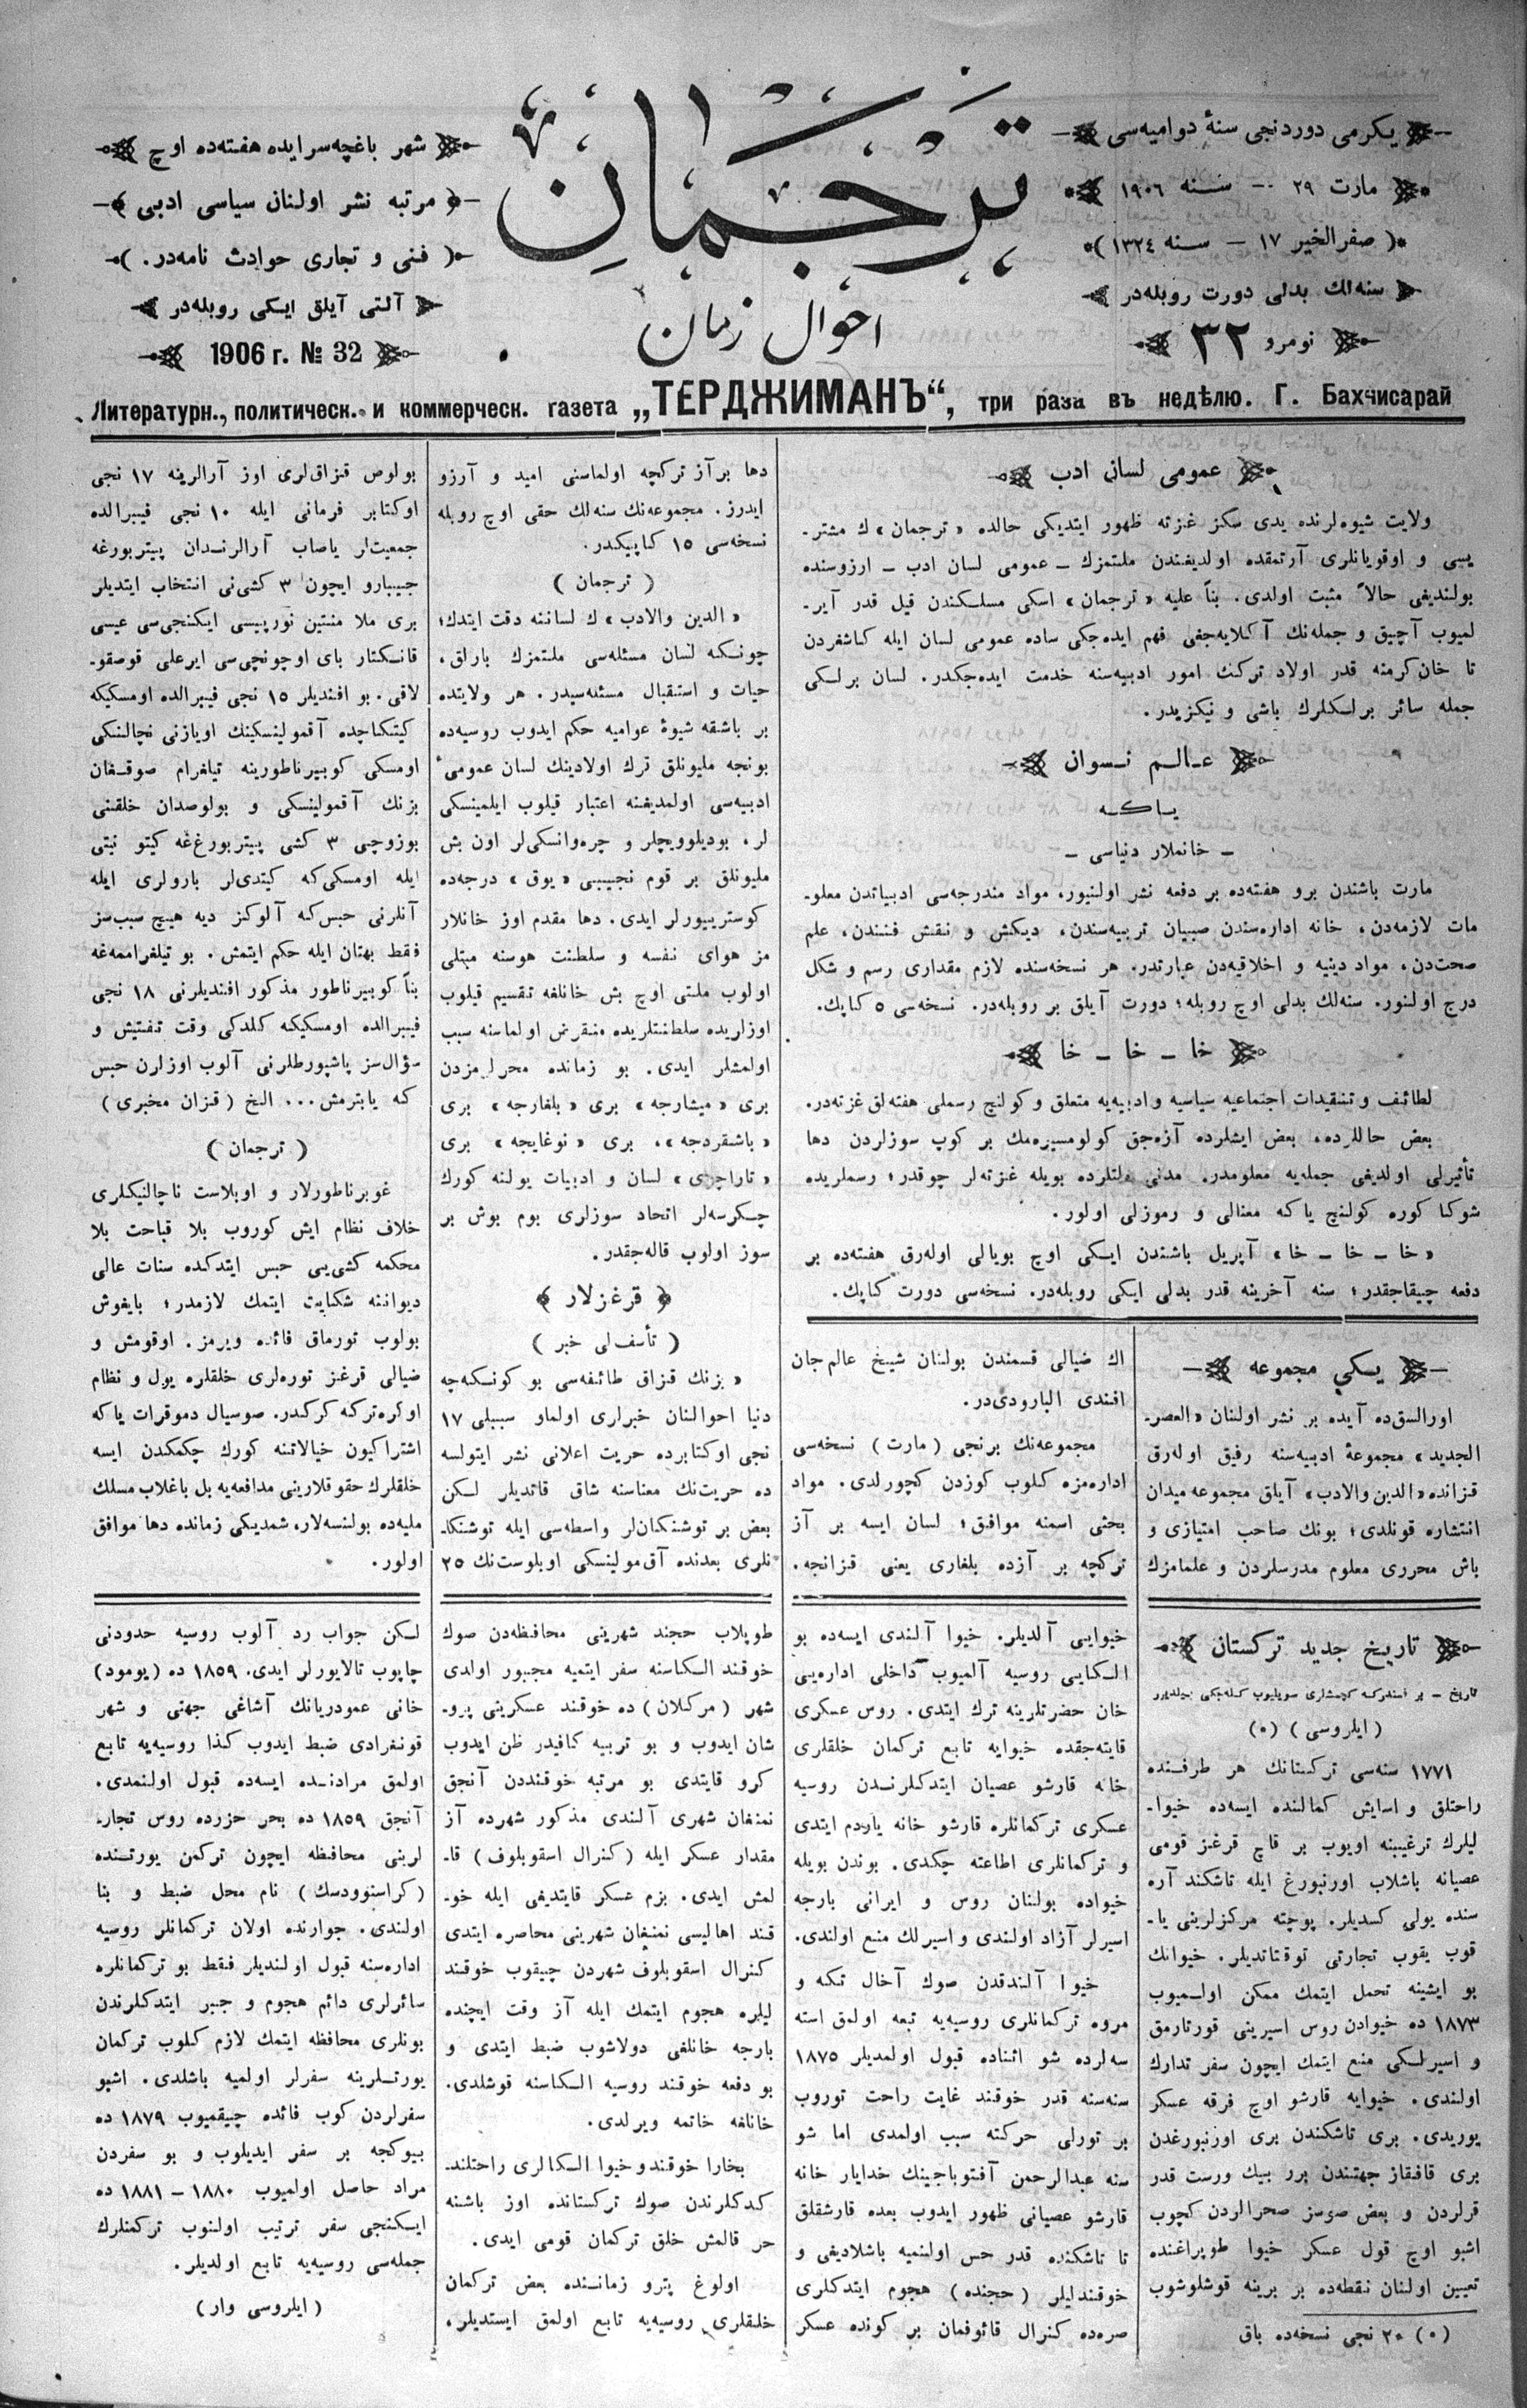 يكرمى دوردنجى سنۀ دواميه‌سى
مارت ٢٩ — سنه ١٩٠٦
صفرالخير ١٧ — سنه ١٣٢٤
سنه‌لك بدلى دورت روبله‌در
نومرو ٣٢
ترجمان
احوال زمان
شهر باغچه‌سرايده هفته‌ده اوچ
مرتبه نشر اولنان سياسى ادبى
فنى و تجارى حوادث نامه‌در.
آلتى آيلق ايكى روبله‌در
1906 г. № 32
Литературн., политическ. и коммерческ. газета „ТЕРДЖИМАНЪ“, три раза въ недѣлю. Г. Бахчисарай
عمومى لسان ادب
ولايت شيوه‌لرنده يدى سكز غزته ظهور ايتديكى حالده «ترجمان» ك مشتر-
يسى و اوقويانلرى آرتمقده اولديغندن ملتمزك — عمومى لسان ادب — ارزوسنده
بولنديغى حالاً مثبت اولدى. بناً عليه «ترجمان» اسكى مسلكندن قيل قدر آير-
لميوب آچيق و جمله‌نك آكلايه‌جغى فهم ايده‌جكى ساده عمومى لسان ايله كاشغردن
تا خان‌كرمنه قدر اولاد تركك امور ادبيه‌سنه خدمت ايده‌جكدر. لسان برلكى
جمله سائر برلكلرك باشى و نيكزيدر.
عالم نسوان
ياكه
— خانملار دنياسى —
مارت باشندن برو هفته‌ده بر دفعه نشر اولنيور، مواد مندرجه‌سى ادبياتدن معلو-
مات لازمه‌دن، خانه اداره‌سندن صبيان تربيه‌سندن، ديكش و نقش فنندن، علم
صحت‌دن، مواد دينيه و اخلاقيه‌دن عبارتدر. هر نسخه‌سنده لازم مقدارى رسم و شكل
درج اولنور. سنه‌لك بدلى اوچ روبله؛ دورت آيلق بر روبله‌در. نسخه‌سى ٥ كاپك.
خا — خا — خا
لطائف و تنقيدات اجتماعيه سياسيه و ادبيه‌يه متعلق و كولنچ رسملى هفته‌لق غزته‌در.
بعض حاللرده، بعض ايشلرده آزه‌جق كولومسيره‌مك بر كوپ سوزلردن دها
تأثيرلى اولديغى جمله‌يه معلومدر. مدنى ملتلرده بويله غزته‌لر چوقدر؛ رسملريده
شوكا كوره كولنچ ياكه معنالى و رموزلى اولور.
«خا — خا — خا» آپريل باشندن ايكى اوچ بويالى اوله‌رق هفته‌ده بر
دفعه چيقاجقدر؛ سنه آخرينه قدر بدلى ايكى روبله‌در. نسخه‌سى دورت كاپك.
يكي مجموعه
اورالسق‌ده آيده بر نشر اولنان «العصر-
الجديد» مجموعۀ ادبيه‌سنه رفيق اوله‌رق
قزانده «الدين والادب» آيلق مجموعه ميدان
انتشاره قونلدى؛ بونك صاحب امتيازى و
باش محررى معلوم مدرسلردن و علمامزك
اك ضيالى قسمندن بولنان شيخ عالم‌جان
افندى البارودى‌در.
مجموعه‌نك برنجى (مارت) نسخه‌سى
اداره‌مزه كلوب كوزدن كچورلدى. مواد
بحثى اسمنه موافق؛ لسان ايسه بر آز
تركچه بر آزده بلغارى يعنى قزانچه.
دها برآز تركچه اولماسنى اميد و آرزو
ايدرز. مجموعه‌نك سنه‌لك حقى اوچ روبله
نسخه‌سى ١٥ كاپيكدر.
(ترجمان)
«الدين والادب» ك لساننه دقت ايتدك؛
چونكه لسان مسئله‌سى ملتمزك بارلق،
حيات و استقبال مسئله‌سيدر. هر ولايتده
بر باشقه شيوۀ عواميه حكم ايدوب روسيه‌ده
بونجه مليونلق ترك اولادينك لسان عمومى
ادبيه‌سى اولمديغنه اعتبار قيلوب ايلمينسكى
لر، بوديلوويچلر و چره‌وانسكى‌لر اون بش
مليونلق بر قوم نجيبى «يوق» درجه‌ده
كوسترييورلر ايدى. دها مقدم اوز خانلار
مز هواى نفسه و سلطنت هوسنه مبتلى
اولوب ملتى اوچ بش خانلغه تقسيم قيلوب
اوزلريده سلطنتلريده منقرض اولماسنه سبب
اولمشلر ايدى. بو زمانده محررلرمزدن
برى «ميشارجه» برى «بلغارجه» برى
«باشقردجه»، برى «نوغايجه» برى
«تاراچرى» لسان و ادبيات يولنه كورك
چكرسه‌لر اتحاد سوزلرى بوم بوش بر
سوز اولوب قاله‌جقدر.
قرغزلار
(تأسف‌لى خبر)
«بزنك قزاق طائفه‌سى بو كونكه‌چه
دنيا احوالنان خبرلرى اولماو سببلى ١٧
نجى اوكتابرده حريت اعلانى نشر ايتولسه
ده حريت‌نك معناسنه شاق قاتديلر لكن
بعض بر توشنكان‌لر واسطه‌سى ايله توشنكا-
نلرى بعدنده آق‌مولينسكى اوبلوست‌نك ٢٥
بولوص قزاق‌لرى اوز آرالرينه ١٧ نجى
اوكتابر فرمانى ايله ١٠ نجى فيبرالده
جمعيت‌لر ياصاب آرالرندان پيتربورغه
جيبارو ايچون ٣ كشى‌نى انتخاب ايتديلر
برى ملا منتين نورپيسى ايكنجى‌سى عيسى
قانكتار باى اوچونچى‌سى ايرعلى قوصقو-
لاقى. بو افنديلر ١٥ نجى فيبرالده اومسكيكه
كيتكاچده آقمولينسكينك اويازنى نچالنكى
اومسكى كوبيرناطورينه تيلغرام صوقـغان
بزنك آقمولينسكى و بولوصدان خلقنى
بوزوچى ٣ كشى پيتربورغ‌غه كيتو نيتى
ايله اومسكى‌كه كيتدى‌لر بارولرى ايله
آنلرنى حبس‌كه آلوكز ديه هيچ سبب‌سز
فقط بهتان ايله حكم ايتمش. بو تيلغراممه‌غه
بناً كوبيرناطور مذكور افنديلرنى ١٨ نجى
فيبرالده اومسكيكه كلدكى وقت تفتيش و
سؤال‌سز پاشپورطلرنى آلوب اوزلرن حبس
كه يابترمش... الخ (قزان مخبرى)
(ترجمان)
غوبرناطورلار و اوبلاست ناچالنيكلرى
خلاف نظام ايش كوروب بلا قباحت بلا
محكمه كشى‌يى حبس ايتدكده سنات عالى
ديواننه شكايت ايتمك لازمدر؛ بايغوش
بولوب تورماق فائده ويرمز. اوقومش و
ضيالى قرغز توره‌لرى خلقلره يول و نظام
اوكره‌ترگه كركدر. صوسيال دموقرات ياكه
اشتراكيون خيالاتنه كورك چكمكدن ايسه
خلقلرك حقوقلارينى مدافعه‌يه بل باغلاب مسلك
مليه‌ده بولنسه‌لار، شمديكى زمانده دها موافق
اولور.
تاريخ جديد تركستان
(ايلروسى) (٠)
١٧٧١ سنه‌سى تركستانك هر طرفنده
راحتلق و اسايش كمالنده ايسه‌ده خيوا-
ليلرك ترغيبنه اويوب بر قاچ قرغز قومى
عصيانه باشلاب اورنبورغ ايله تاشكند آره
سنده يولى كسديلر. پوچته مركزلرينى يا-
قوب يقوب تجارتى توقتاتديلر. خيوانك
بو ايشينه تحمل ايتمك ممكن اولميوب
١٨٧٣ ده خيوادن روس اسيرينى قورتارمق
و اسيرلكى منع ايتمك ايچون سفر تدارك
اولندى. خيوايه قارشو اوچ فرقه عسكر
يوريدى. برى تاشكندن برى اورنبورغدن
برى قافقاز جهتندن برر بيك ورست قدر
قرلردن و بعض صوسز صحرالردن كچوب
اشبو اوچ قول عسكر خيوا طوپراغنده
تعيين اولنان نقطه‌ده بر برينه قوشلوشوب
(٠) ٢٠ نجى نسخه‌ده باق
خيوايى آلديلر. خيوا آلندى ايسه‌ده بو
الكايى روسيه آلميوب داخلى اداره‌يى
خان حضرتلرينه ترك ايتدى. روس عسكرى
قايته‌جقده خيوايه تابع تركمان خلقلرى
خانه قارشو عصيان ايتدكلرندن روسيه
عسكرى تركمانلره قارشو خانه ياردم ايتدى
و تركمانلرى اطاعته چكدى. بوندن بويله
خيواده بولنان روس و ايرانى بارجه
اسيرلر آزاد اولندى و اسيرلك منع اولندى.
خيوا آلندقدن صوك آخال تكه و
مروه تركمانلرى روسيه‌يه تبعه اولمق استه
سه‌لرده شو اثناده قبول اولمديلر ١٨٧٥
سنه‌سنه قدر خوقند غايت راحت توروب
بر تورلى حركته سبب اولمدى اما شو
سنه عبدالرحمن آفتوباجينك خدايار خانه
قارشو عصيانى ظهور ايدوب بعده قارشقلق
تا تاشكنده قدر حس اولنميه باشلاديغى و
خوقنديلر (حجنده) هجوم ايتدكلرى
صره‌ده كنرال قائوفمان بر كونده عسكر
طوپلاب حجند شهرينى محافظه‌دن صوك
خوقند الكاسنه سفر ايتميه مجبور اولدى
شهر (مركلان) ده خوقند عسكرينى پرو-
شان ايدوب و بو تربيه كافيدر ظن ايدوب
كرو قايتدى بو مرتبه خوقنددن آنجق
نمنغان شهرى آلندى مذكور شهرده آز
مقدار عسكر ايله (كنرال اسقوبلوف) قا-
لمش ايدى. بزم عسكر قايتديغى ايله خو-
قند اهاليسى نمنغان شهرينى محاصره ايتدى
كنرال اسقوبلوف شهردن چيقوب خوقند
ليلره هجوم ايتمك ايله آز وقت ايچنده
بارجه خانلغى دولاشوب ضبط ايتدى و
بو دفعه خوقند روسيه الكاسنه قوشلدى.
خانلغه خاتمه ويرلدى.
بخارا خوقند و خيوا الكالرى راحتلند-
كدكلرندن صوك تركستانده اوز باشنه
حر قالمش خلق تركمان قومى ايدى.
اولوغ پترو زمانــنده بعض تركمان
خلقلرى روسيه‌يه تابع اولمق ايستديلر،
لكن جواب رد آلوب روسيه حدودنى
چاپوب تالايورلر ايدى. ١٨٥٩ ده (يومود)
خانى عمودريانك آشاغى جهتى و شهر
قونغرادى ضبط ايدوب كذا روسيه‌يه تابع
اولمق مرادنده ايسه‌ده قبول اولنمدى.
آنجق ١٨٥٩ ده بحر حزرده روس تجار-
لرينى محافظه ايچون تركمن يورتـنده
(كراسنوودسك) نام محل ضبط و بنا
اولندى. جوارنده اولان تركمانلر روسيه
اداره‌سنه قبول اولنديلر فقط بو تركمانلره
سائرلرى دائم هجوم و جبر ايتدكلرندن
بونلرى محافظه ايتمك لازم كلوب تركمان
يورتـلرينه سفرلر اولميه باشلدى. اشبو
سفرلردن كوب فائده چيقميوب ١٨٧٩ ده
بيوكجه بر سفر ايديلوب و بو سفردن
مراد حاصل اولميوب ١٨٨٠ — ١٨٨١ ده
ايكنجى سفر ترتيب اولنوب تركمنلرك
جمله‌سى روسيه‌يه تابع اولديلر.
(ايلروسى وار)